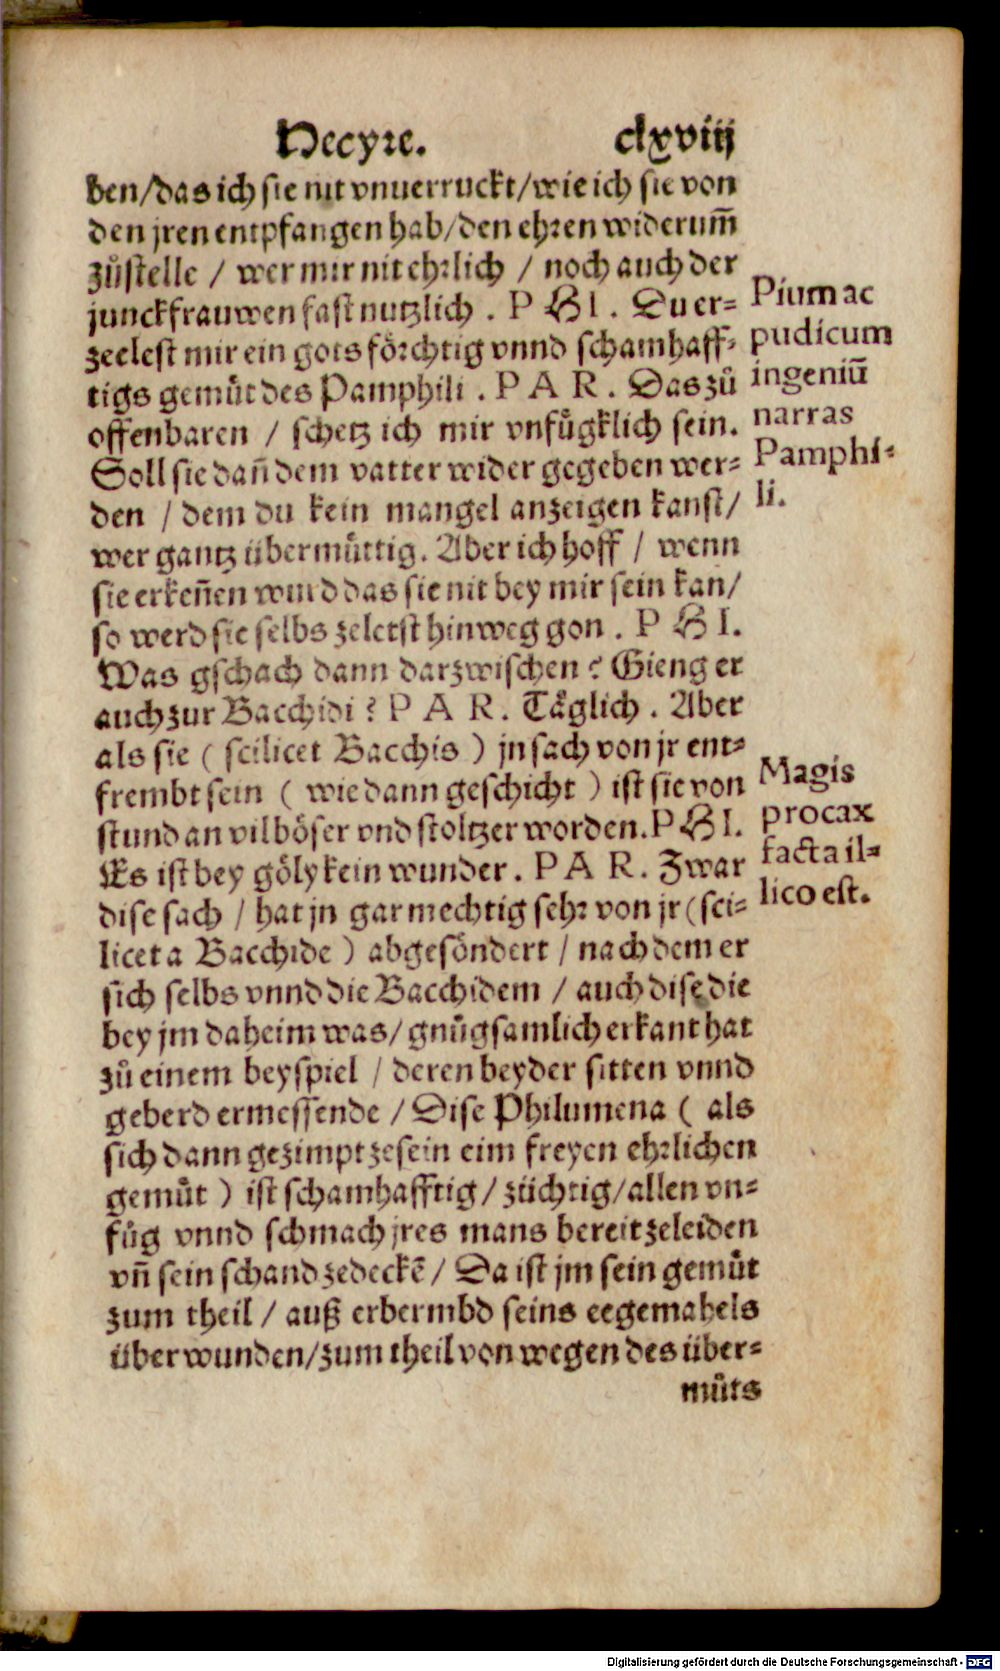 Hecyre. clxviij
ben/das ich sie nit vnuerruckt/wie ich sie von
den jren entpfangen hab/den ehren widerum̃
zůstelle / wer mir nit ehrlich / noch auch der
junckfrauwen fast nutzlich . P H I . Du er=
zeelest mir ein gots förchtig vnnd schamhaff=
tigs gemůt des Pamphili . P A R . Das zů
offenbaren / schetz ich mir vnfůgklich sein.
Soll sie dañ dem vatter wider gegeben wer=
den / dem du kein mangel anzeigen kanst/
wer gantz übermůttig. Aber ich hoff / wenn
sie erkeñen wurd das sie nit bey mir sein kan/
so werd sie selbs zeletst hinweg gon . P H I.
Was gschach dann darzwischen ? Gieng er
auch zur Bacchidi ? P A R . Täglich . Aber
als sie ( scilicet Bacchis ) jn sach von jr ent=
frembt sein ( wie dann geschicht ) ist sie von
stund an vil böser vnd stoltzer worden. P H I.
Es ist bey göly kein wunder . P A R . Zwar
dise sach / hat jn gar mechtig sehr von jr (sci=
licet a Bacchide ) abgesöndert / nach dem er
sich selbs vnnd die Bacchidem / auch dise die
bey jm daheim was/ gnůgsamlich erkant hat
zů einem beyspiel / deren beyder sitten vnnd
geberd ermessende / Dise Philumena ( als
sich dann gezimpt zesein eim freyen ehrlichen
gemůt ) ist schamhafftig/ züchtig/allen vn=
fůg vnnd schmach jres mans bereit zeleiden
vñ sein schand zedeckẽ / Da ist jm sein gemůt
zum theil / auß erbermbd seins eegemahels
überwunden/zum theil von wegen des über=
můts
Pium ac
pudicum
ingeniũ
narras
Pamphi=
li.
Magis
procax
facta il=
lico est.
Digitalisierung gefördert durch die Deutsche Forschungsgemeinschaft - DFG